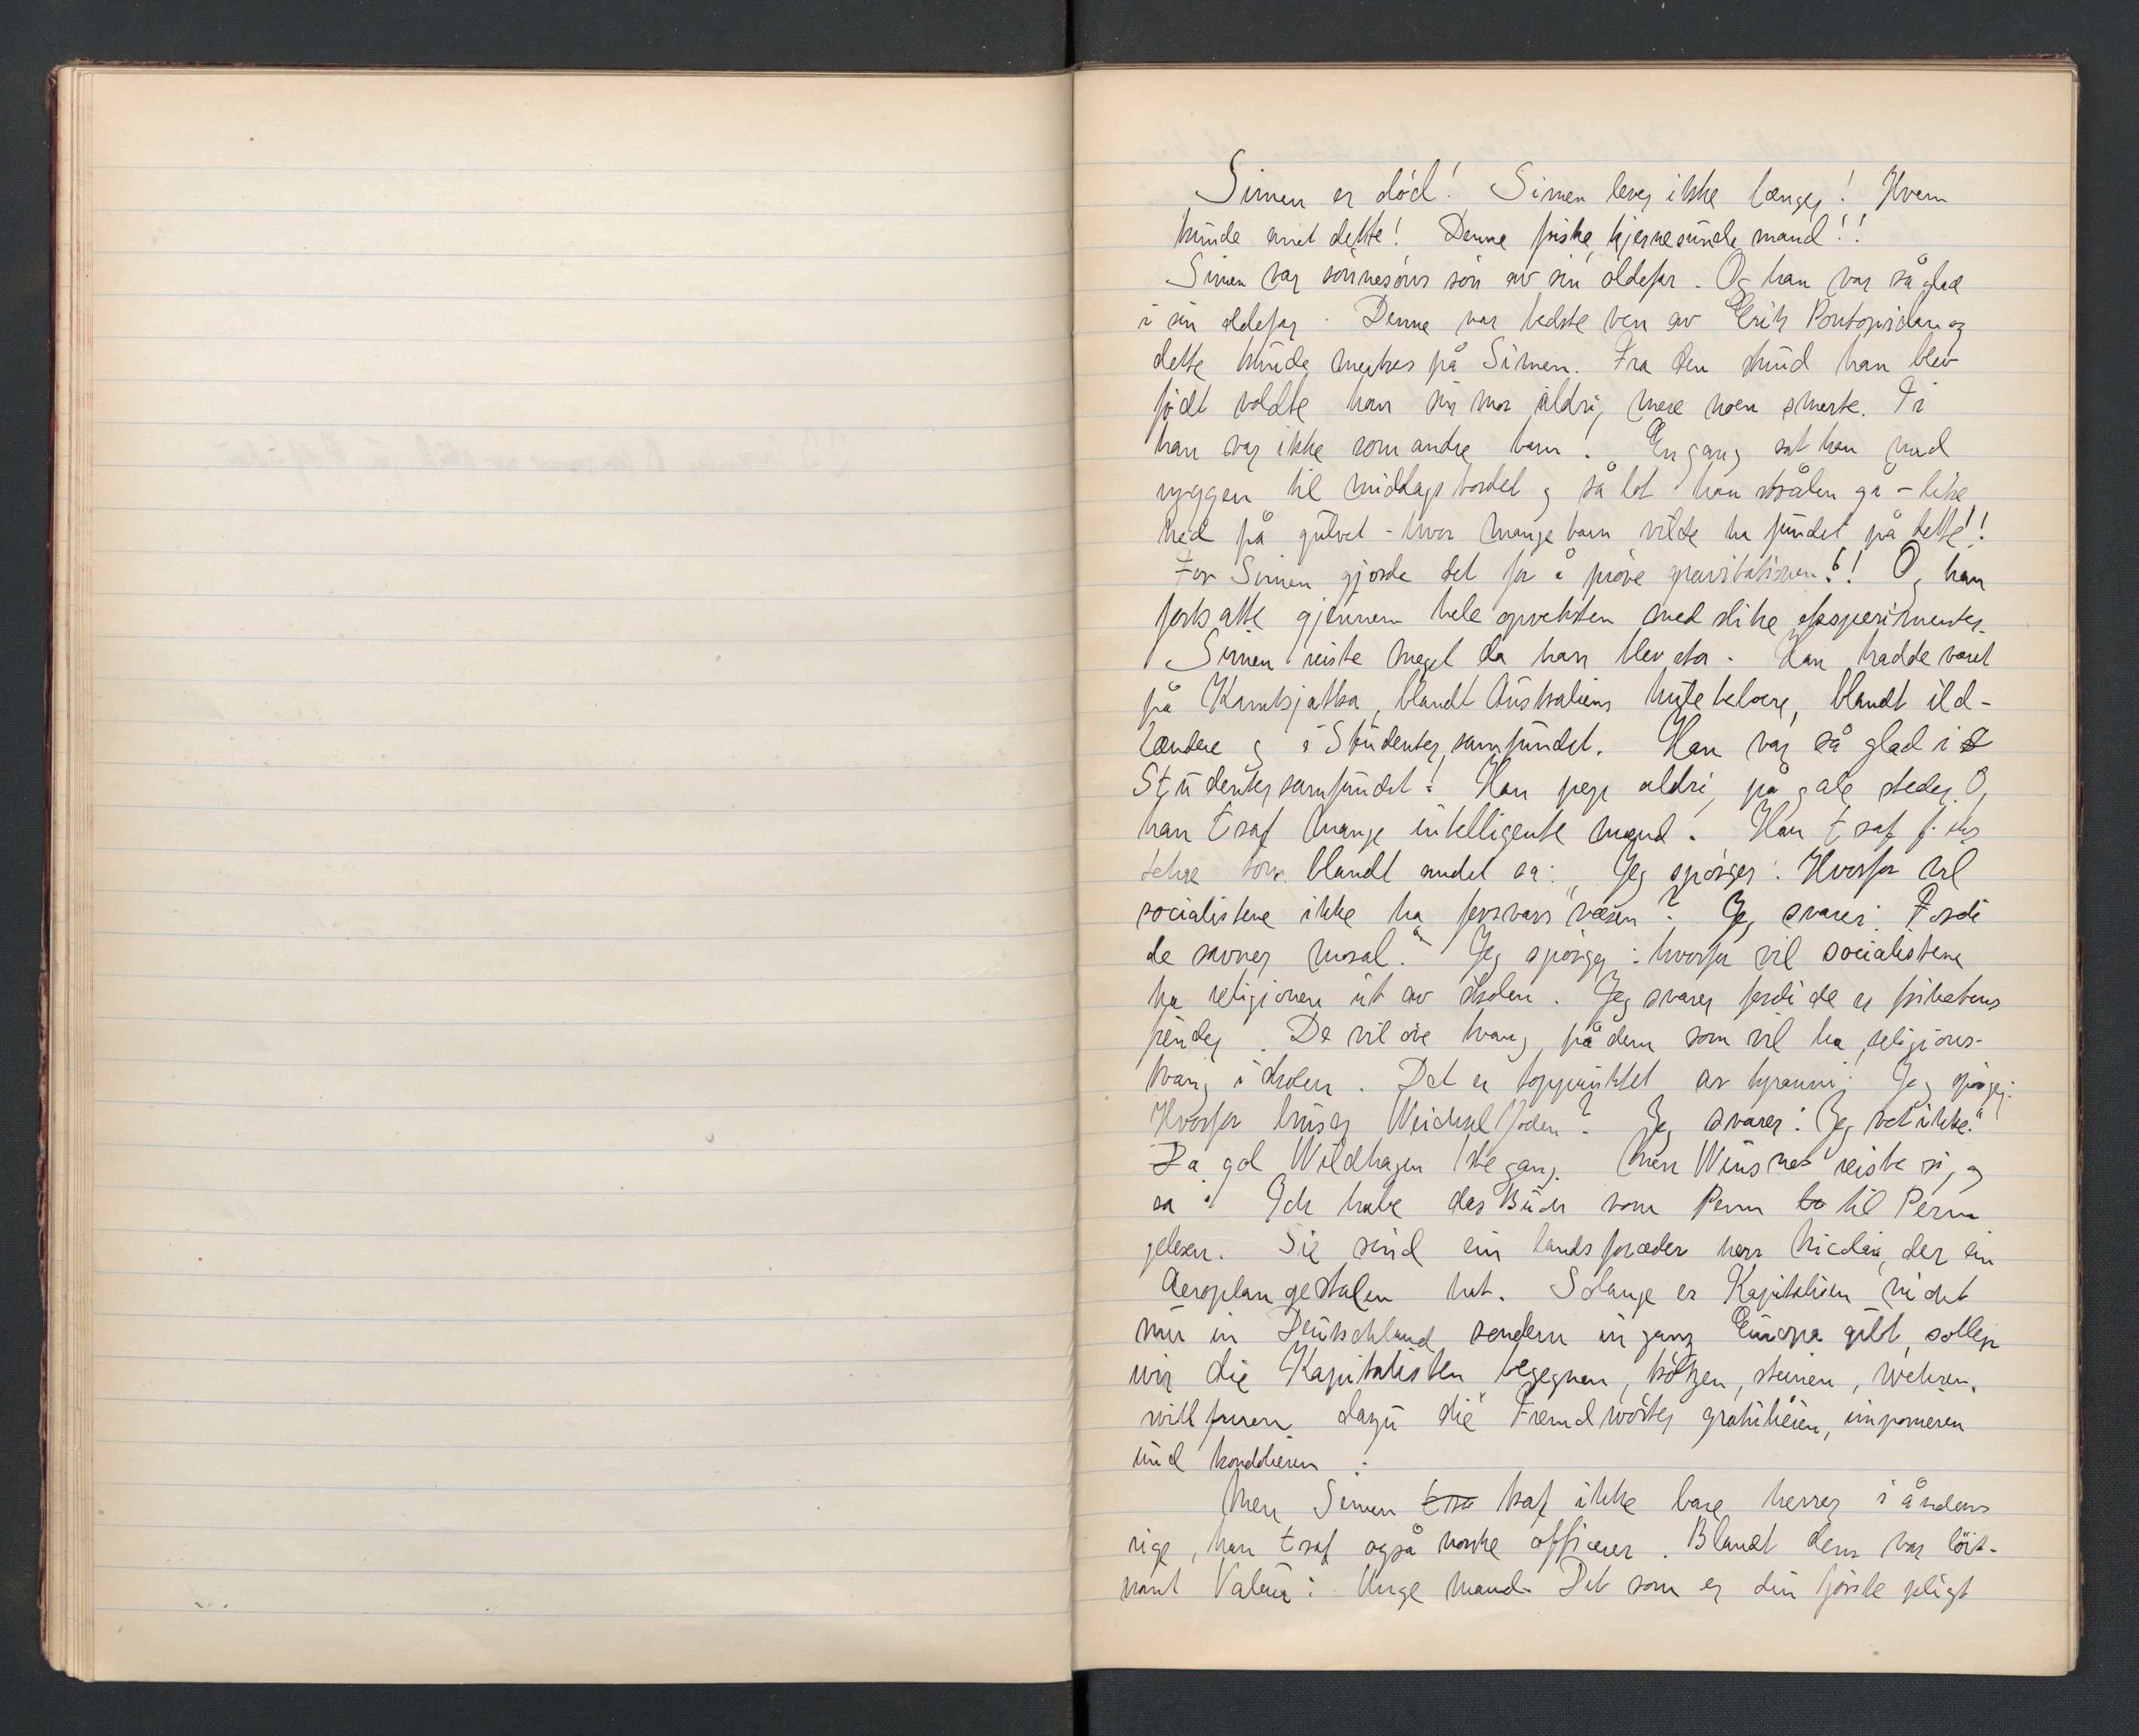 Simen er död! Simen lever ikke længer! Hvem
kunde anet dette! Denne friske, kjernesunde mand!!
Simen var sönnesöns sön av sin oldefar. Og han var så glad
i sin oldefar. Denne var bedste ven av Erik Pontopidan og
dette kunde merkes på Simen. Fra den stund han blev
födt voldte han sin mor aldri mere noen smerte. Ti
han var ikke som andre barn! Engang sat han med
ryggen til middagsbordet og så lot han skålen gå – like
ned på gulvet – hvor mange barn vilde ha fundet på dette!!
For Simen gjorde det for å pröve gravitationen!! Og han
fortsatte gjennem hele opveksten med slike eksperimenter.
Simen reiste meget da han blev stor. Han hadde været
på Kamtsjatka, blandt Australiens huletebloere, blandt ild-
lændere og i Studentersamfundet. Han var så glad i
Studentersamfundet! Han pege aldri på gale steder. Og
han traf mange intelligente mænd. Han traf f. eks
som blandt andet sa: „Jeg spörger: Hvorfor vil
socialistene ikke ha forsvarsvæsen? Jeg svarer: Fordi
de savner moral." Jeg spörger: hvorfor vil socialistene
ha religionen ut av skolen. Jeg svarer fordi de er frihetens
fiender. De vil öve tvang på dem som vil ha religions-
tvang i skolen. Det er toppunktet av tyranni. Jeg spörger:
Hvorfor bruser Weichselfloden? Jeg svarer: Jeg vet ikke."
Da gol Wildhagen 1ste gang. Men Winsnes reiste sig og
sa: Ich habe das Buch vom Perm til Perm
gelesen. Sie sind ein landsforæder herr der ein
Aeroplan gestolen hat. Solange er Kapitalism nicht
nur in Deutschland sondern in ganz Europa gilt, sollen
wir die Kapitalisten begegnen, trotzen, steinen, wehren,
willfaren dazu die Fremdwörter gratulieren, imponieren
und kondolieren.
Men Simen traf ikke bare herrer i åndens
rige, han traf også norske officerer. Blandt dem var löit-
nant Valeur: Unge mand. Det som er din förste pligt